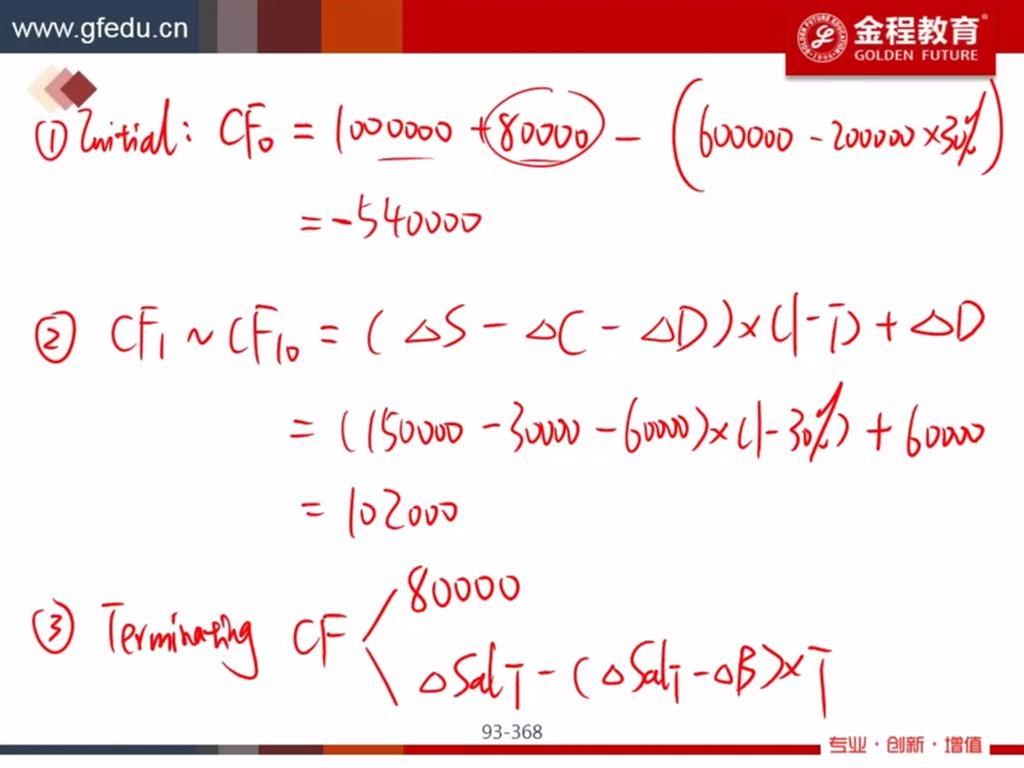 www.gfedu.cn
金程教育®
GOLDEN FUTURE
① Initial: CF₀ = 1000000 + 80000 - (600000 - 200000 × 30%)
= -540000
② CF₁ ~ CF₁₀ = (△S - △C - △D) × (1-T) + △D
= (150000 - 30000 - 60000) × (1-30%) + 60000
= 102000
80000
③ Terminating CF
△Sal_T - (△Sal_T - △B) × T
93-368
专业·创新·增值